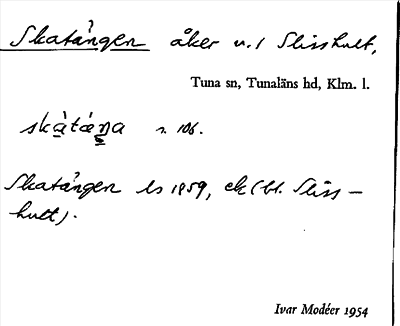 Skatången åker u./ Slisshult,
Tuna sn, Tunaläns hd, Klm. l.
skàtáŋa s. 106.
Skatången ls 1859, ek (bl. Sliss-
hult).
Ivar Modéer 1954